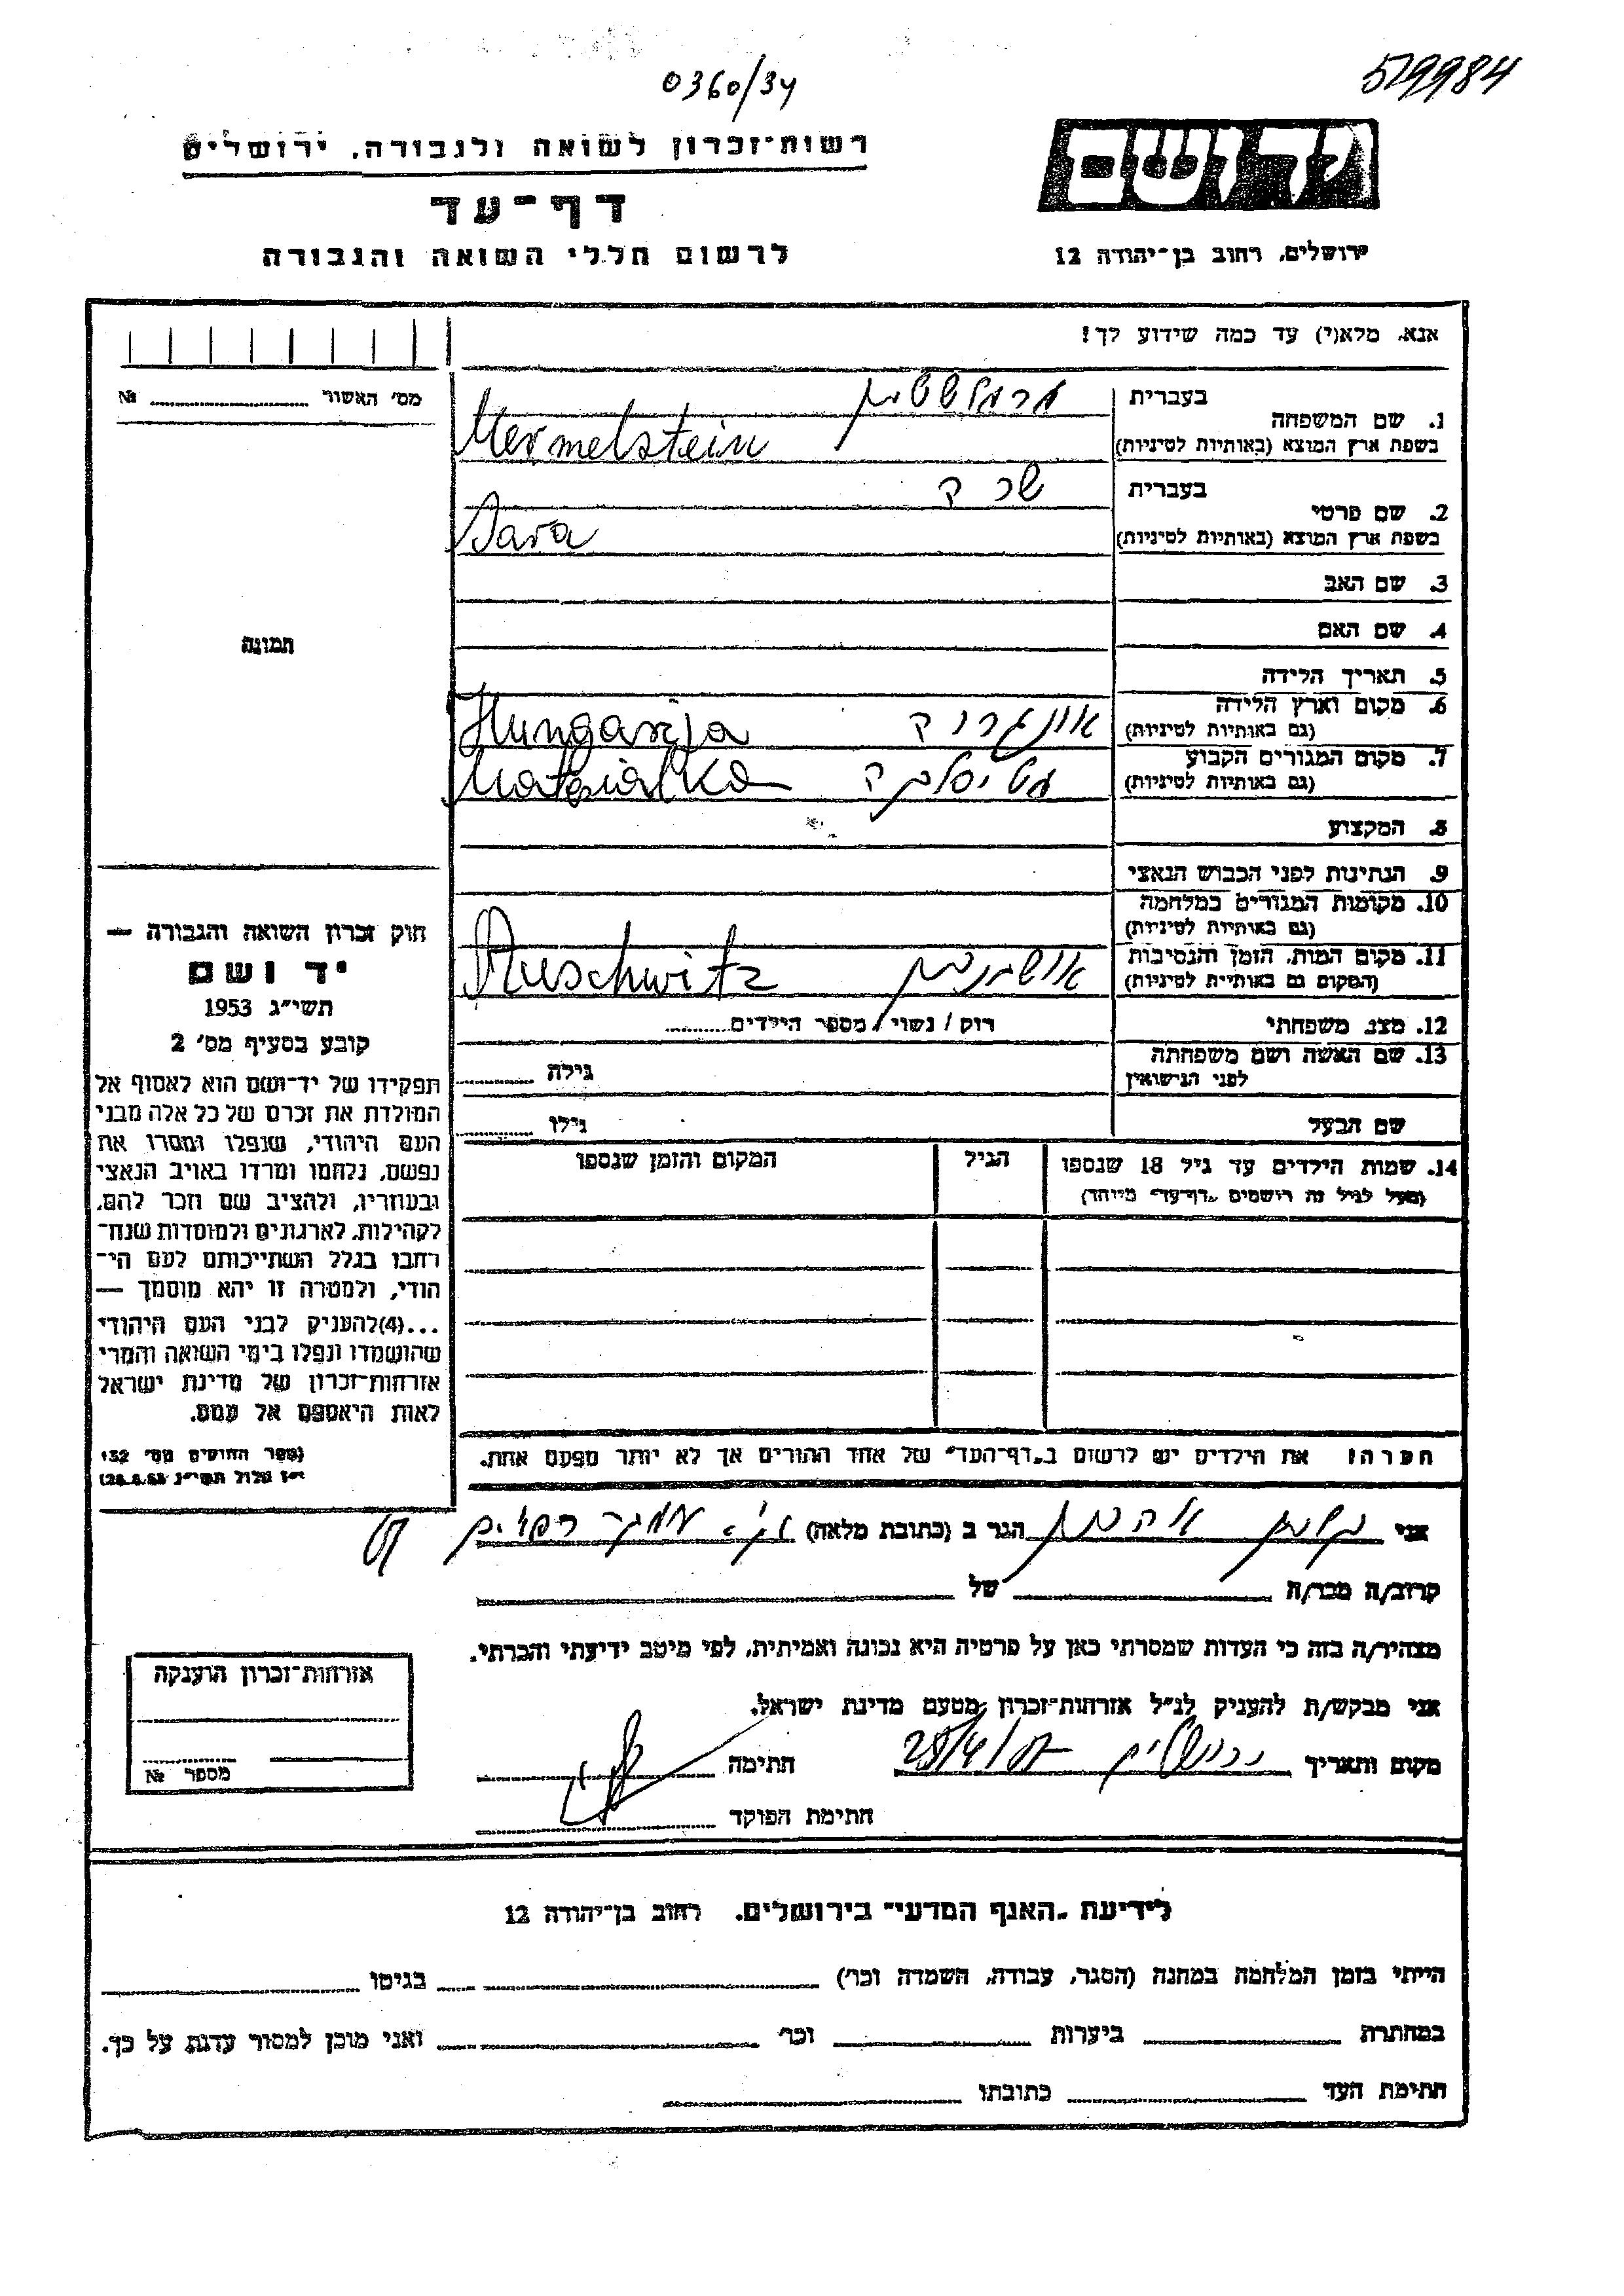 0360/34
519984
רשות־זכרון לשואה ולגבורה, ירושלים
דף־עד
לרשום חללי השואה והגבורה
ידושם
ירושלים, רחוב בן־יהודה 12
אנא, מלא(י) עד כמה שידוע לך!
מס׳ האשור № ........
1. שם המשפחה בעברית מרמלשטיין
בשפת ארץ המוצא (באותיות לטיניות) Mermelstein
2. שם פרטי בעברית שרה
בשפת ארץ המוצא (באותיות לטיניות) Sara
3. שם האב
4. שם האם
תמונה
5. תאריך הלידה
6. מקום וארץ הלידה (גם באותיות לטיניות) אונגריה Hungarija
7. מקום המגורים הקבוע (גם באותיות לטיניות) מטיסלקה Mateszalka
8. המקצוע
9. הנתינות לפני הכבוש הנאצי
10. מקומות המגורים במלחמה (גם באותיות לטיניות)
11. מקום המות, הזמן והנסיבות (המקום גם באותיות לטיניות) אושוויץ Auschwitz
12. מצב משפחתי רוק / נשוי / מספר הילדים........
13. שם האשה ושם משפחתה לפני הנישואין גילה ........
שם הבעל גילו ........
14. שמות הילדים עד גיל 18 שנספו הגיל המקום והזמן שנספו
(מעל לגיל זה רושמים „דף־עד״ מיוחד)
הערה! את הילדים יש לרשום ב„דף־העד״ של אחד ההורים אך לא יותר מפעם אחת.
חוק זכרון השואה והגבורה —
יד ושם
תשי״ג 1953
קובע בסעיף מס׳ 2
תפקידו של יד־ושם הוא לאסוף אל
המולדת את זכרם של כל אלה מבני
העם היהודי, שנפלו ומסרו את
נפשם, נלחמו ומרדו באויב הנאצי
ובעוזריו, ולהציב שם וזכר להם,
לקהילות, לארגונים ולמוסדות שנח־
רבו בגלל השתייכותם לעם הי־
הודי, ולמטרה זו יהא מוסמך —
...(4)להעניק לבני העם היהודי
שהושמדו ונפלו בימי השואה והמרי
אזרחות־זכרון של מדינת ישראל
לאות היאספם אל עמם.
(ספר החוקים מס׳ 132
י״ז אלול תשי״ג 28.8.53)
אני הגר ב (כתובת מלאה)
קרוב/ה מכר/ה של
מצהיר/ה בזה כי העדות שמסרתי כאן על פרטיה היא נכונה ואמיתית, לפי מיטב ידיעתי והכרתי.
אני מבקש/ת להעניק לנ״ל אזרחות־זכרון מטעם מדינת ישראל.
מקום ותאריך ירושלים חתימה
חתימת הפוקד
אזרחות־זכרון הוענקה
מספר №
לידיעת „האגף המדעי״ בירושלים, רחוב בן־יהודה 12
הייתי בזמן המלחמה במחנה (הסגר, עבודה, השמדה וכר׳) בגיטו
במחתרת ביערות וכר׳ ואני מוכן למסור עדות על כך.
חתימת העד כתובתו